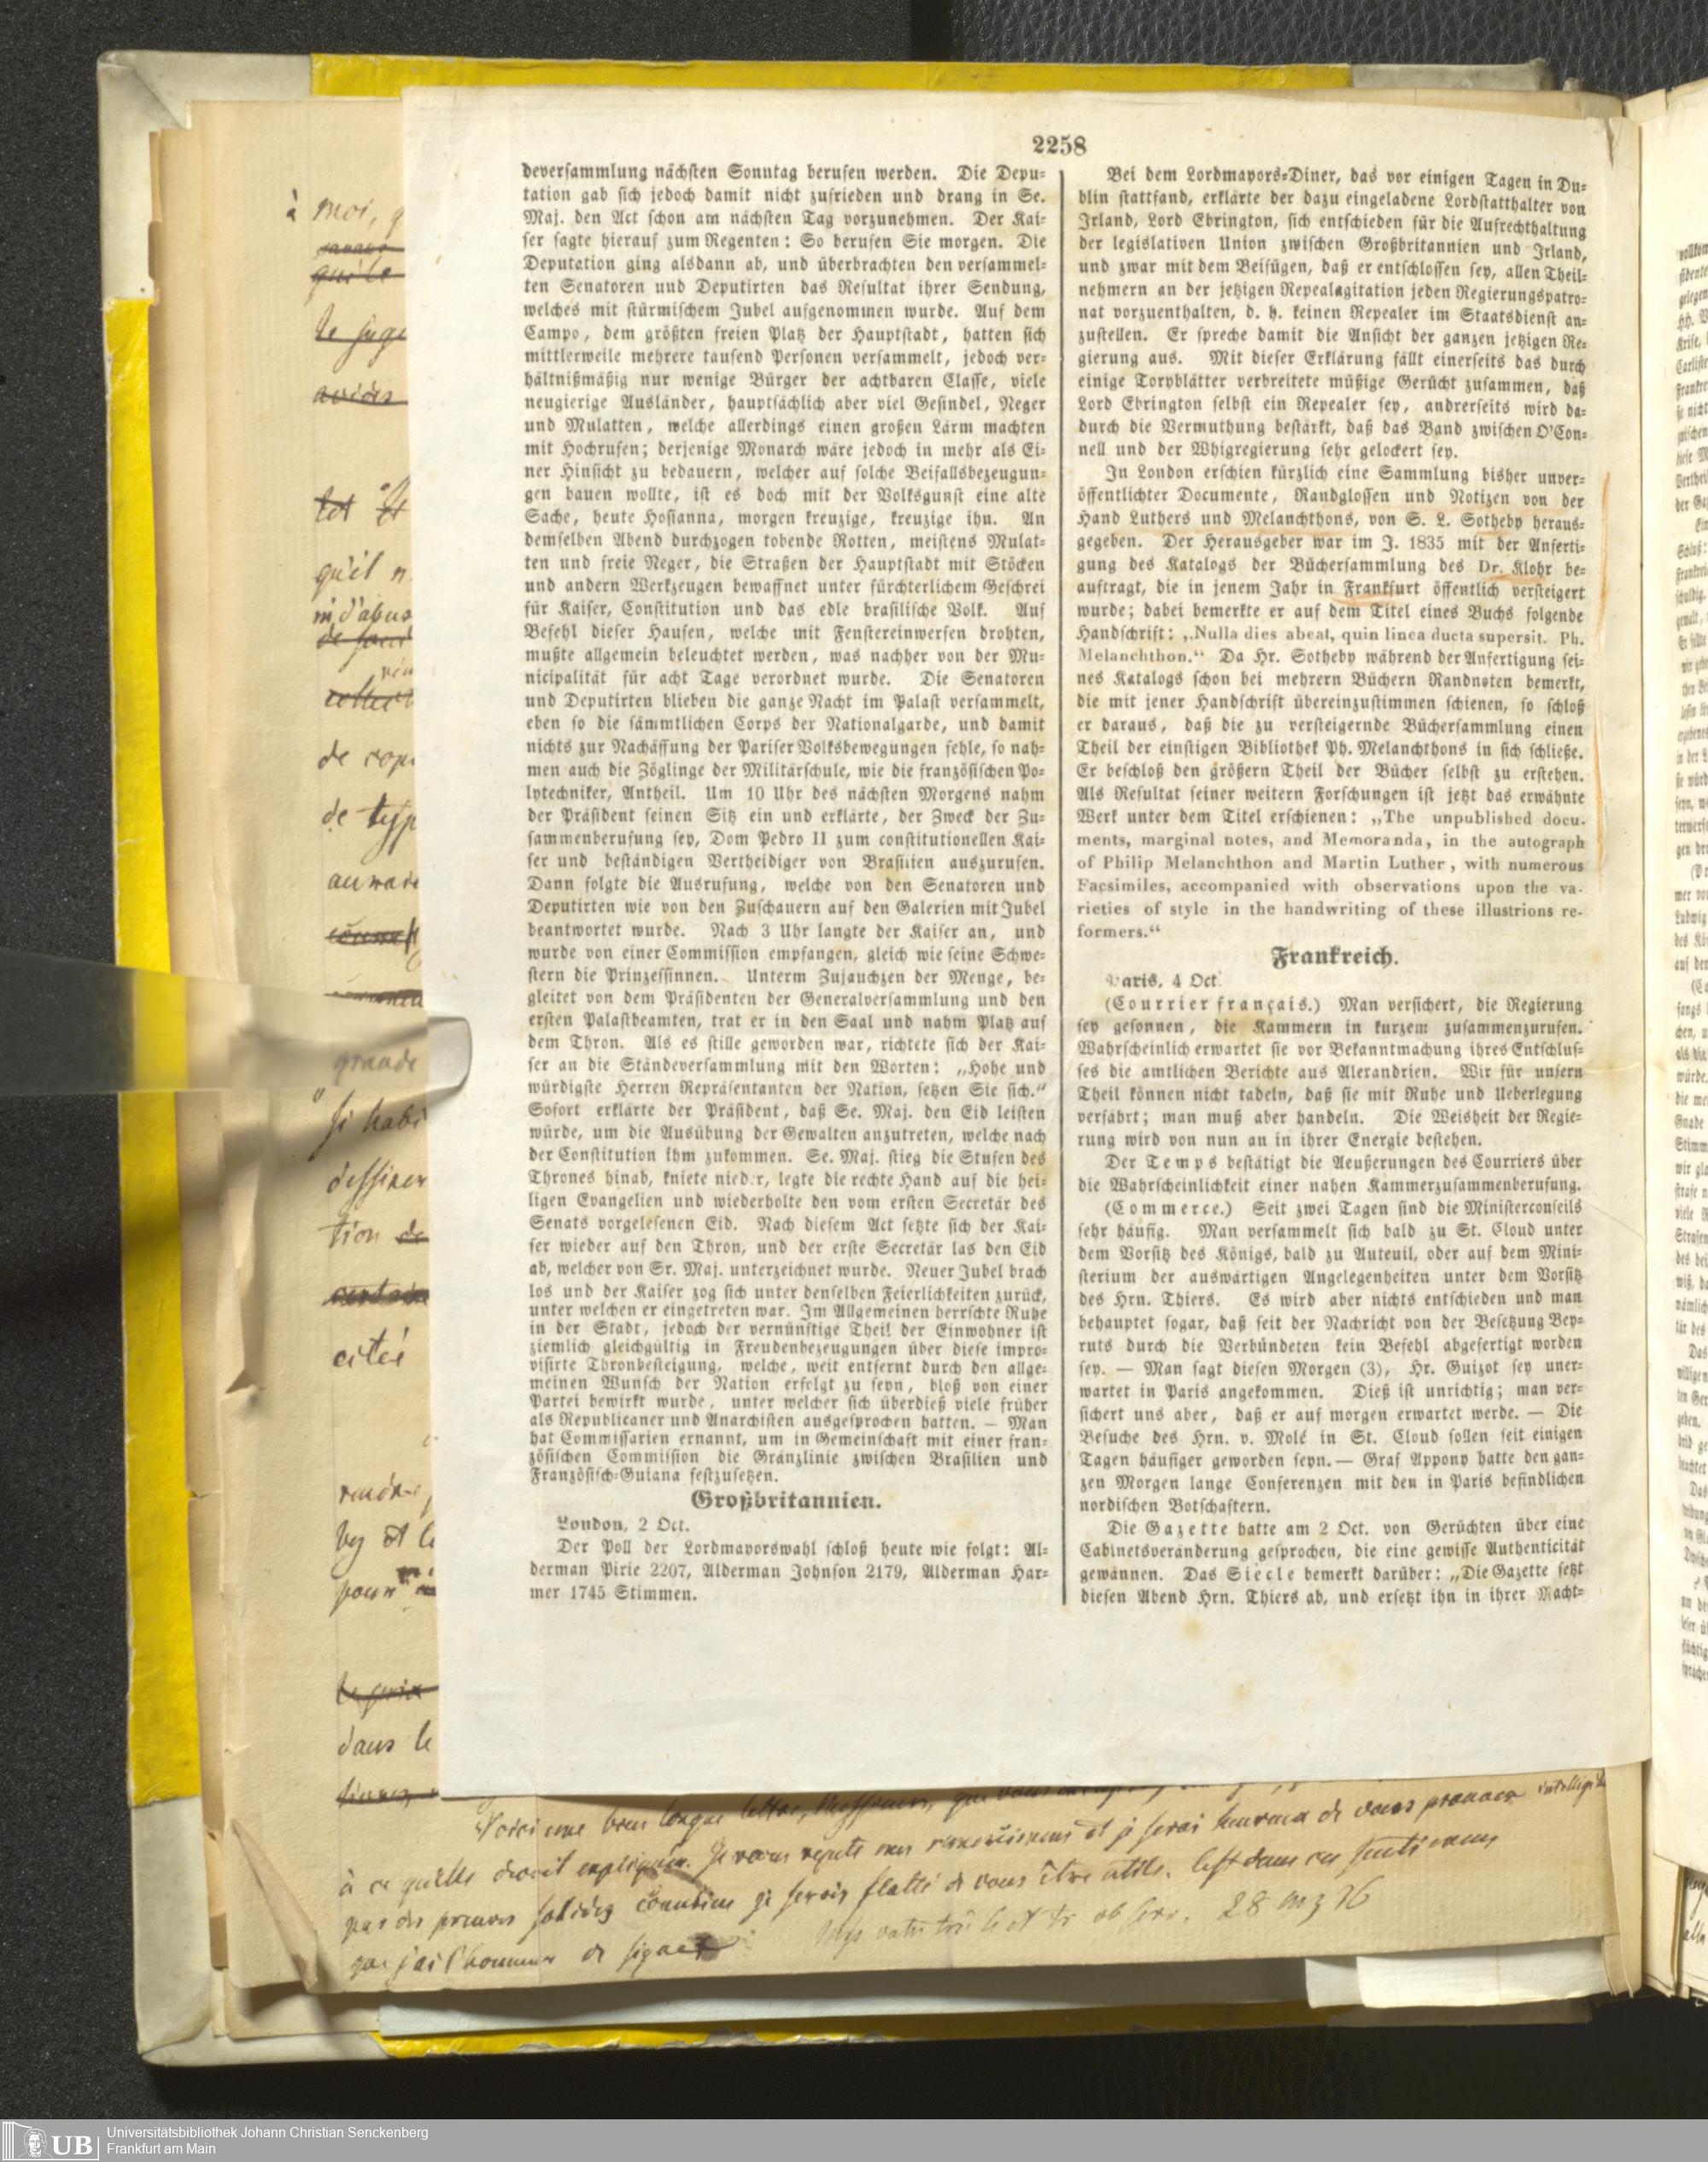 2258
deversammlung nächsten Sonntag berufen werden. Die Depu-
tation gab sich jedoch damit nicht zufrieden und drang in Se.
Maj. den Act schon am nächsten Tag vorzunehmen. Der Kai-
ser sagte hierauf zum Regenten: So berufen Sie morgen. Die
Deputation ging alsdann ab, und überbrachten den versammel-
ten Senatoren und Deputirten das Resultat ihrer Sendung,
welches mit stürmischem Jubel aufgenommen wurde. Auf dem
Campo, dem größten freien Platz der Hauptstadt, hatten sich
mittlerweile mehrere tausend Personen versammelt, jedoch ver-
hältnißmäßig nur wenige Bürger der achtbaren Classe, viele
neugierige Ausländer, hauptsächlich aber viel Gesindel, Neger
und Mulatten, welche allerdings einen großen Lärm machten
mit Hochrufen; derjenige Monarch wäre jedoch in mehr als Ei-
ner Hinsicht zu bedauern, welcher auf solche Beifallsbezeugun-
gen bauen wollte, ist es doch mit der Volksgunst eine alte
Sache, heute Hosianna, morgen kreuzige, kreuzige ihn. An
demselben Abend durchzogen tobende Rotten, meistens Mulat-
ten und freie Neger, die Straßen der Hauptstadt mit Stöcken
und andern Werkzeugen bewaffnet unter fürchterlichem Geschrei
für Kaiser, Constitution und das edle brasilische Volk. Auf
Befehl dieser Haufen, welche mit Fenstereinwerfen drohten,
mußte allgemein beleuchtet werden, was nachher von der Mu-
nicipalität für acht Tage verordnet wurde. Die Senatoren
und Deputirten blieben die ganze Nacht im Palast versammelt,
eben so die sämmtlichen Corps der Nationalgarde, und damit
nichts zur Nachäffung der Pariser Volksbewegungen fehle, so nah-
men auch die Zöglinge der Militärschule, wie die französischen Po-
lytechniker, Antheil. Um 10 Uhr des nächsten Morgens nahm
der Präsident seinen Sitz ein und erklärte, der Zweck der Zu-
sammenberufung sey, Dom Pedro II zum constitutionellen Kai-
ser und beständigen Vertheidiger von Brasilien auszurufen.
Dann folgte die Ausrufung, welche von den Senatoren und
Deputirten wie von den Zuschauern auf den Galerien mit Jubel
beantwortet wurde. Nach 3 Uhr langte der Kaiser an, und
wurde von einer Commission empfangen, gleich wie seine Schwe-
stern die Prinzessinnen. Unterm Zujauchzen der Menge, be-
gleitet von dem Präsidenten der Generalversammlung und den
ersten Palastbeamten, trat er in den Saal und nahm Platz auf
dem Thron. Als es stille geworden war, richtete sich der Kai-
ser an die Ständeversammlung mit den Worten: „Hohe und
würdigste Herren Repräsentanten der Nation, setzen Sie sich.“
Sofort erklärte der Präsident, daß Se. Maj. den Eid leisten
würde, um die Ausübung der Gewalten anzutreten, welche nach
der Constitution ihm zukommen. Se. Maj. stieg die Stufen des
Thrones hinab, kniete nieder, legte die rechte Hand auf die hei-
ligen Evangelien und wiederholte den vom ersten Secretär des
Senats vorgelesenen Eid. Nach diesem Act setzte sich der Kai-
ser wieder auf den Thron, und der erste Secretär las den Eid
ab, welcher von Sr. Maj. unterzeichnet wurde. Neuer Jubel brach
los und der Kaiser zog sich unter denselben Feierlichkeiten zurück,
unter welchen er eingetreten war. Im Allgemeinen herrschte Ruhe
in der Stadt, jedoch der vernünftige Theil der Einwohner ist
ziemlich gleichgültig in Freudenbezeugungen über diese impro-
visirte Thronbesteigung, welche, weit entfernt durch den allge-
meinen Wunsch der Nation erfolgt zu seyn, bloß von einer
Partei bewirkt wurde, unter welcher sich überdieß viele früher
als Republicaner und Anarchisten ausgesprochen hatten. — Man
hat Commissarien ernannt, um in Gemeinschaft mit einer fran-
zösischen Commission die Gränzlinie zwischen Brasilien und
Französisch-Guiana festzusetzen.
Großbritannien.
London, 2 Oct.
Der Poll der Lordmayorswahl schloß heute wie folgt: Al-
derman Pirie 2207, Alderman Johnson 2179, Alderman Har-
mer 1745 Stimmen.
Bei dem Lordmayors-Diner, das vor einigen Tagen in Du-
blin stattfand, erklärte der dazu eingeladene Lordstatthalter von
Irland, Lord Ebrington, sich entschieden für die Aufrechthaltung
der legislativen Union zwischen Großbritannien und Irland,
und zwar mit dem Beifügen, daß er entschlossen sey, allen Theil-
nehmern an der jetzigen Repealagitation jeden Regierungspatro-
nat vorzuenthalten, d. h. keinen Repealer im Staatsdienst an-
zustellen. Er spreche damit die Ansicht der ganzen jetzigen Re-
gierung aus. Mit dieser Erklärung fällt einerseits das durch
einige Toryblätter verbreitete müßige Gerücht zusammen, daß
Lord Ebrington selbst ein Repealer sey, andrerseits wird da-
durch die Vermuthung bestärkt, daß das Band zwischen O'Con-
nell und der Whigregierung sehr gelockert sey.
In London erschien kürzlich eine Sammlung bisher unver-
öffentlichter Documente, Randglossen und Notizen von der
Hand Luthers und Melanchthons, von S. L. Sotheby heraus-
gegeben. Der Herausgeber war im J. 1835 mit der Anferti-
gung des Katalogs der Büchersammlung des Dr. Klohr be-
auftragt, die in jenem Jahr in Frankfurt öffentlich versteigert
wurde; dabei bemerkte er auf dem Titel eines Buchs folgende
Handschrift: „Nulla dies abeat, quin linea ducta supersit. Ph.
Melanchthon.“ Da Hr. Sotheby während der Anfertigung sei-
nes Katalogs schon bei mehrern Büchern Randnoten bemerkt,
die mit jener Handschrift übereinzustimmen schienen, so schloß
er daraus, daß die zu versteigernde Büchersammlung einen
Theil der einstigen Bibliothek Ph. Melanchthons in sich schließe.
Er beschloß den größern Theil der Bücher selbst zu erstehen.
Als Resultat seiner weitern Forschungen ist jetzt das erwähnte
Werk unter dem Titel erschienen: „The unpublished docu-
ments, marginal notes, and Memoranda, in the autograph
of Philip Melanchthon and Martin Luther, with numerous
Facsimiles, accompanied with observations upon the va-
rieties of style in the handwriting of these illustrions re-
formers.“
Frankreich.
Paris, 4 Oct.
(Courrier français.) Man versichert, die Regierung
sey gesonnen, die Kammern in kurzem zusammenzurufen.
Wahrscheinlich erwartet sie vor Bekanntmachung ihres Entschlus-
ses die amtlichen Berichte aus Alexandrien. Wir für unsern
Theil können nicht tadeln, daß sie mit Ruhe und Ueberlegung
verfährt; man muß aber handeln. Die Weisheit der Regie-
rung wird von nun an in ihrer Energie bestehen.
Der Temps bestätigt die Aeußerungen des Courriers über
die Wahrscheinlichkeit einer nahen Kammerzusammenberufung.
(Commerce.) Seit zwei Tagen sind die Ministerconseils
sehr häufig. Man versammelt sich bald zu St. Cloud unter
dem Vorsitz des Königs, bald zu Auteuil, oder auf dem Mini-
sterium der auswärtigen Angelegenheiten unter dem Vorsitz
des Hrn. Thiers. Es wird aber nichts entschieden und man
behauptet sogar, daß seit der Nachricht von der Besetzung Bey-
ruts durch die Verbündeten kein Befehl abgefertigt worden
sey. — Man sagt diesen Morgen (3), Hr. Guizot sey uner-
wartet in Paris angekommen. Dieß ist unrichtig; man ver-
sichert uns aber, daß er auf morgen erwartet werde. — Die
Besuche des Hrn. v. Molé in St. Cloud sollen seit einigen
Tagen häufiger geworden seyn. — Graf Appony hatte den gan-
zen Morgen lange Conferenzen mit den in Paris befindlichen
nordischen Botschaftern.
Die Gazette hatte am 2 Oct. von Gerüchten über eine
Cabinetsveränderung gesprochen, die eine gewisse Authenticität
gewännen. Das Siecle bemerkt darüber: „Die Gazette setzt
diesen Abend Hrn. Thiers ab, und ersetzt ihn in ihrer Macht-
à moi,
qu'il
de
de
grande
dessiner
tion
cité
dans le
Voici une bien longue lettre, Messieurs, que vous
à ce qu'elle devoit expliquer. Je vous répète mes et je serai heureux de vous prouver
par des preuves solides combien je serois flatté de vous être utile. C'est dans ces sentimens
que j'ai l'honneur de signer
28
UB
Universitätsbibliothek Johann Christian Senckenberg
Frankfurt am Main